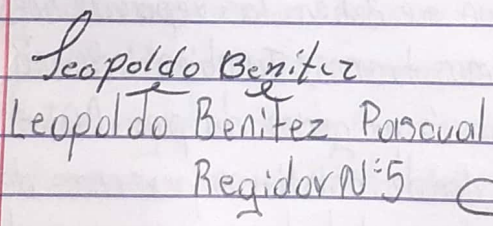 Leopoldo Benitez
Leopoldo Benitez Pascual
Regidor N:5